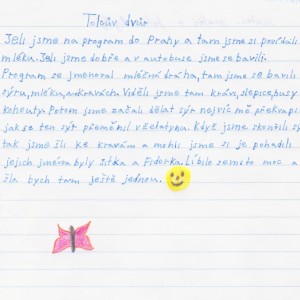 Toluův dvůr
Jeli jsme na program do Prahy a tam jsme si povídali
mléku. Jeli jsme dobře a v autobuse jsme se bavili.
Program se jmenoval mléčná dráha, tam jsme se bavili
sýru, mléku, a o kravách. Viděli jsme tam krávy, slepice, husy
kohouty. Potom jsme začali dělat sýr nejvíc mě překvapi
jak se ten sýr přeměnil v želatynu. Když jsme skončili sý
tak jsme šli ke kravám a mohli jsme si je pohadili
jejich jména byly Jitka a Fidorka. Líbilo se mi to moc a
šla bych tam ještě jednou.